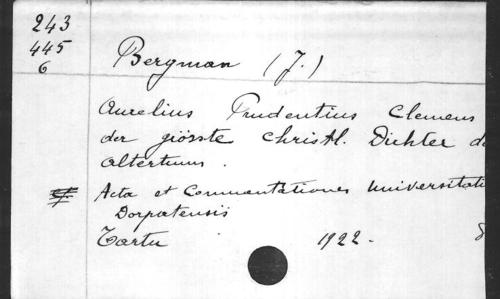 243
445
6
Bergman (J.)
Aurelius Prudentius Clemens
der giösste christl. Dichter de
altertums.
Acta et Commentationes Universitati
Dorpatensis
Tartu 1922. 8